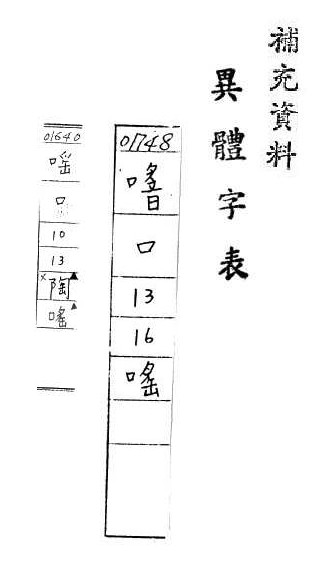 補充資料
異體字表
01748
口
13
16
嗂
01640
嗂
口
10
13
×陶▲
嗂▲